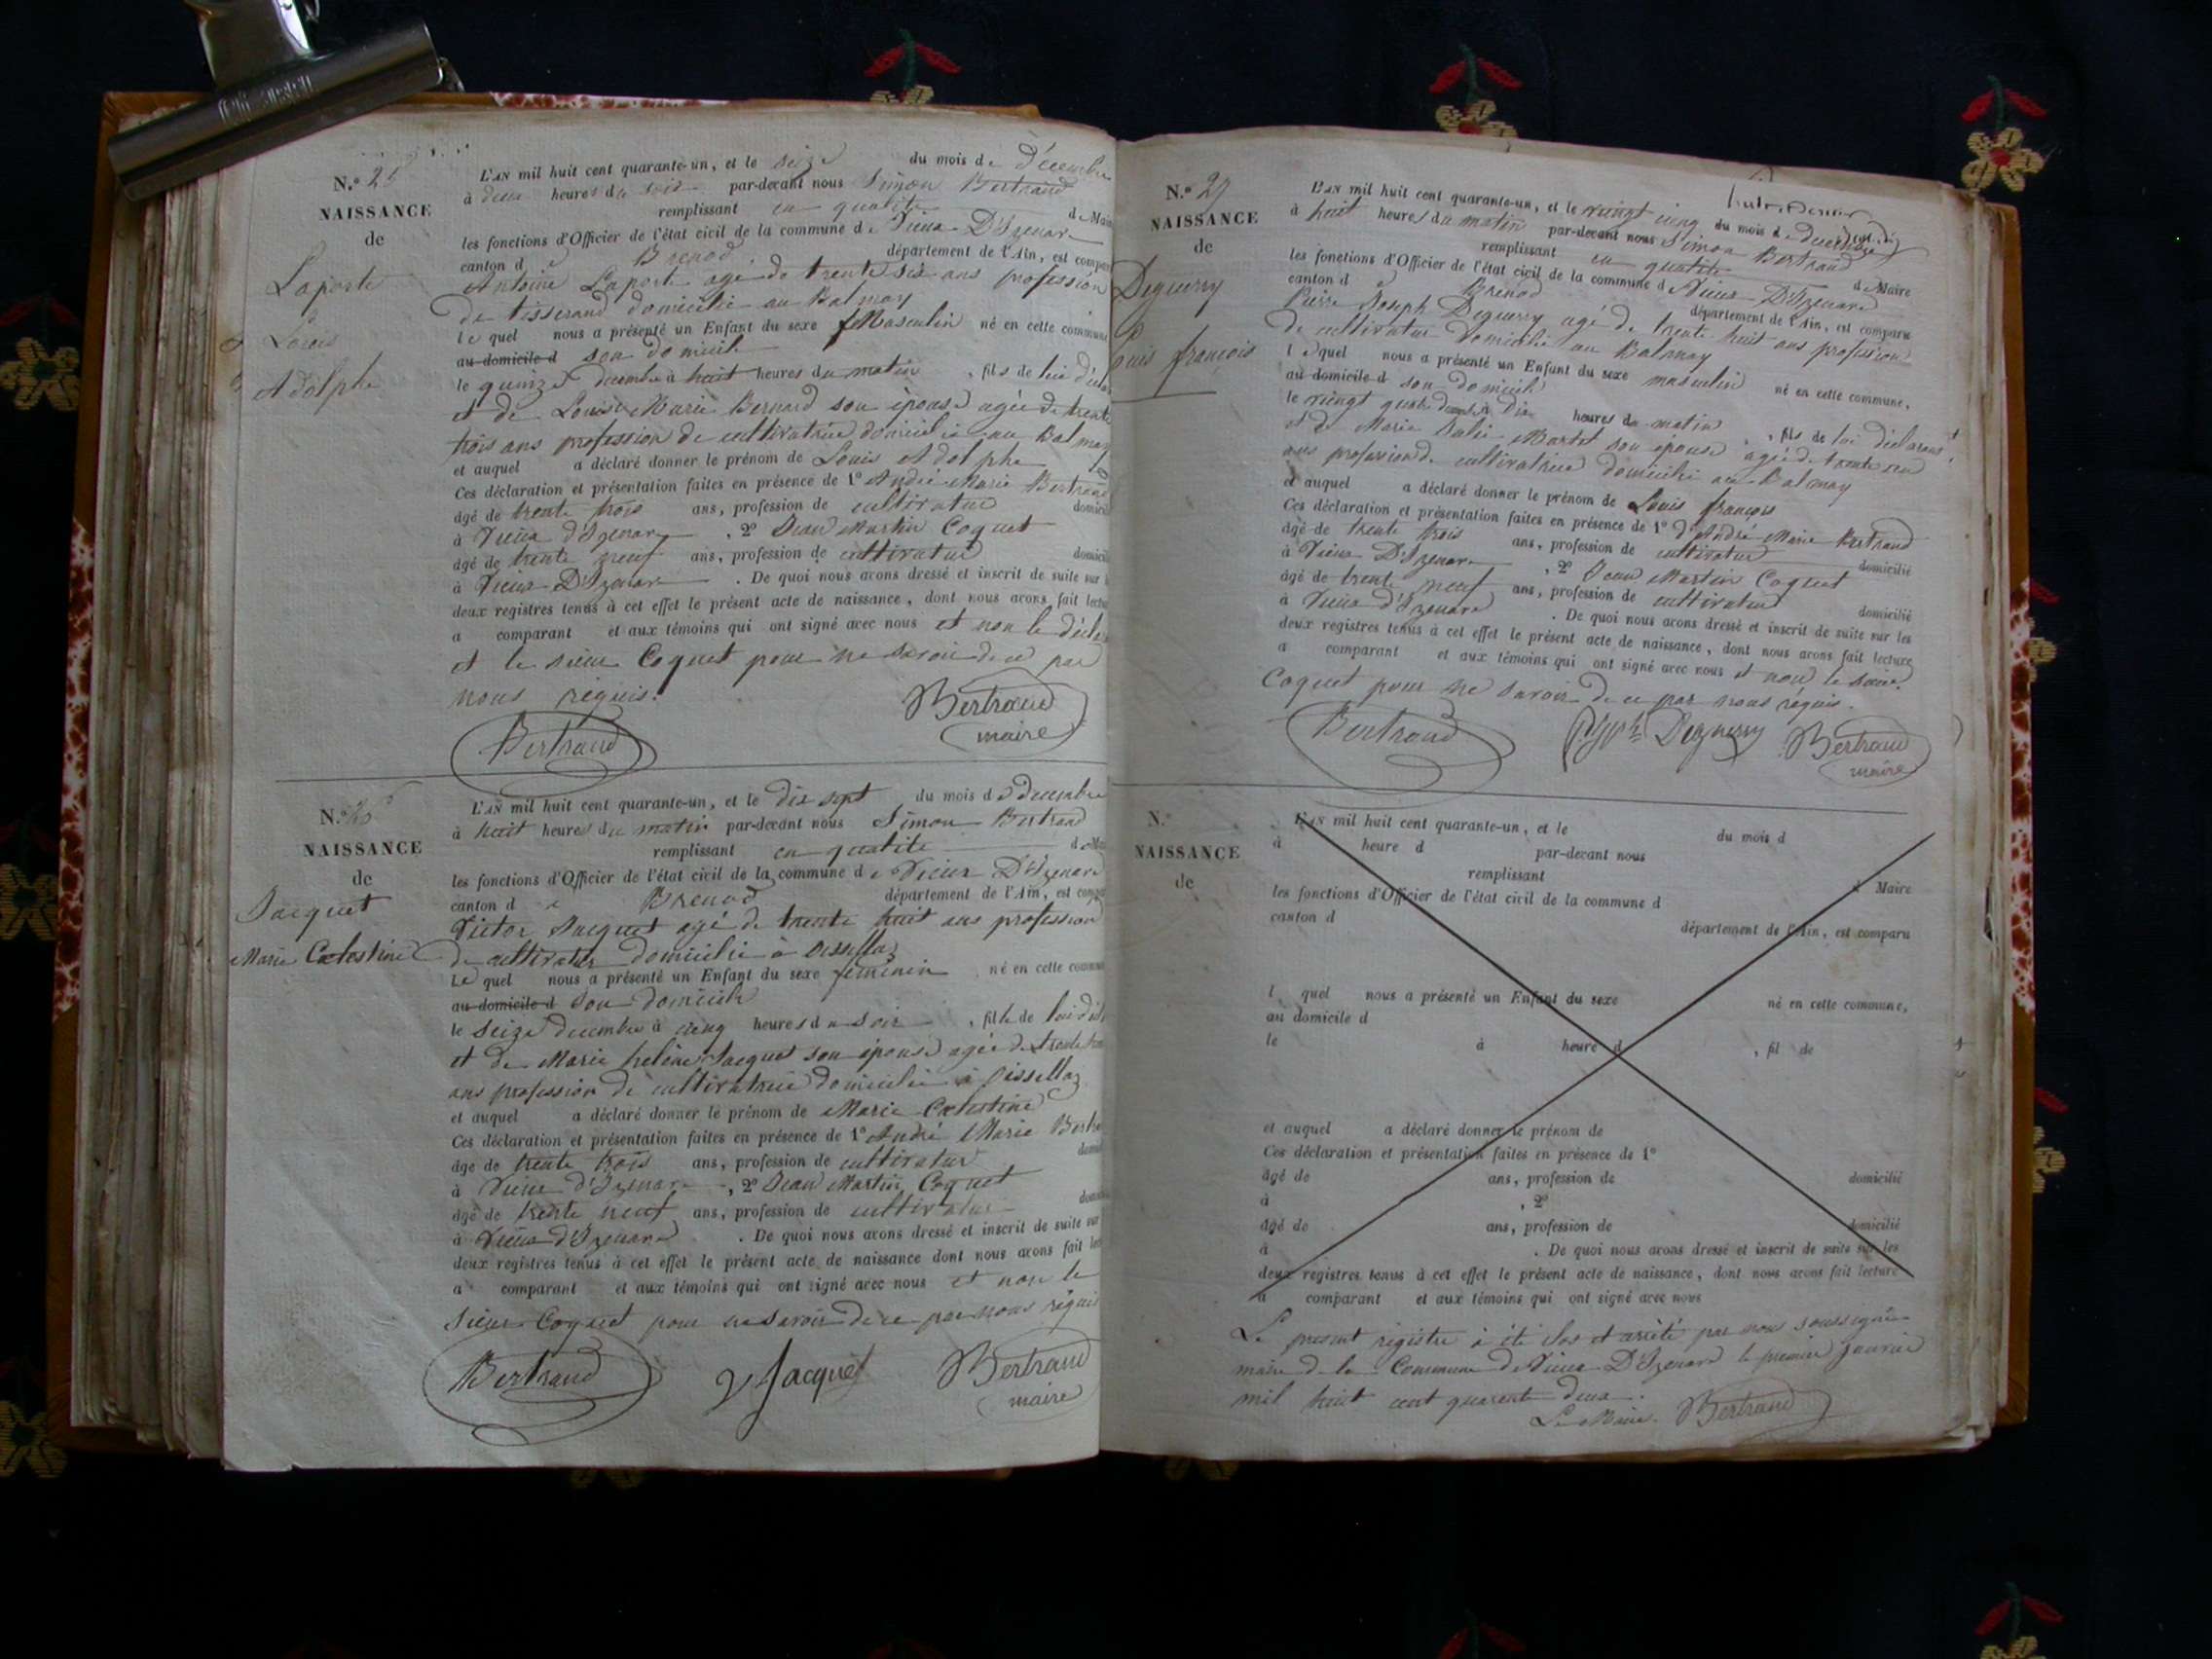 N.º 25
NAISSANCE
de
Laporte
Louis
Adolphe
L'AN mil huit cent quarante-un, et le seize du mois de décembre
à deux heures du soir par-devant nous Simon Bertrand
remplissant en qualité de Maire
les fonctions d'Officier de l'état civil de la commune de Vieux D'Izenave
canton de Brenod département de l'Ain, est comparu
Antoine Laporte agé de trente six ans profession
de tisserand domicilié au Balmay
le quel nous a présenté un Enfant du sexe Masculin né en cette commune
au domicile d son domicile
le quinze decembre à huit heures du matin, fils de lui déclarant
et de Louise Marie Bernard son épouse agée de trente
trois ans profession de cultivatrice domiciliée au Balmay
et auquel a déclaré donner le prénom de Louis Adolphe
Ces déclaration et présentation faites en présence de 1º André Marie Bertrand
âgé de trente trois ans, profession de cultivateur domicilié
à Vieux d'Izenave, 2º Jean Martin Coquet
âgé de trente neuf ans, profession de cultivateur domicilié
à Vieux D'Izenave. De quoi nous avons dressé et inscrit de suite sur
deux registres tenus à cet effet le présent acte de naissance, dont nous avons fait lecture
a comparant et aux témoins qui ont signé avec nous et non le
et le sieur Coquet pour ne savoir de ce par
nous requis.
Bertrand
Bertrand
maire
N.º 26
NAISSANCE
de
Jacquet
Marie Celestine
L'AN mil huit cent quarante-un, et le dix sept du mois de decembre
à huit heures du matin par-devant nous Simon Bertrand
remplissant en qualité de Maire
les fonctions d'Officier de l'état civil de la commune de Vieux D'Izenave
canton de Brenod département de l'Ain, est comparu
Victor Jacquet agé de trente huit ans profession
de cultivateur domicilié à
Le quel nous a présenté un Enfant du sexe feminin né en cette commune
au domicile d son domicile
le seize decembre à cinq heures du soir, fille de lui
et de Marie helène Jacquet son épouse agée de trente
ans profession de cultivatrice domiciliée à
et auquel a déclaré donner le prénom de Marie Celestine
Ces déclaration et présentation faites en présence de 1º André Marie Bertrand
âgé de trente trois ans, profession de cultivateur
à Vieux d'Izenave, 2º Jean Martin Coquet
âgé de trente neuf ans, profession de cultivateur
à Vieux d'Izenave. De quoi nous avons dressé et inscrit de suite sur
deux registres tenus à cet effet le présent acte de naissance dont nous avons fait
a comparant et aux témoins qui ont signé avec nous et non le
sieur Coquet pour ne savoir de ce par nous requis
Bertrand
V Jacquet
Bertrand
maire
N.º 27
NAISSANCE
de
Deguerry
Louis françois
L'AN mil huit cent quarante-un, et le vingt cinq du mois de decembre
à huit heures du matin par-devant nous Simon Bertrand
remplissant en qualité de Maire
les fonctions d'Officier de l'état civil de la commune de Vieux D'Izenave
canton de Brenod département de l'Ain, est comparu
Pierre Joseph Deguerry agé de trente huit ans profession
de cultivateur domicilié au Balmay
lequel nous a présenté un Enfant du sexe masculin né en cette commune,
au domicile d son domicile
le vingt quatre à Dix heures du matin, fils de lui déclarant
et de Marie Julie Martet son épouse agée de trente
ans profession de cultivatrice domiciliée au Balmay
et auquel a déclaré donner le prénom de Louis françois
Ces déclaration et présentation faites en présence de 1º André Marie Bertrand
âgé de trente trois ans, profession de cultivateur domicilié
à Vieux D'Izenave, 2º Jean Martin Coquet
âgé de trente neuf ans, profession de cultivateur domicilié
à Vieux d'Izenave. De quoi nous avons dressé et inscrit de suite sur les
deux registres tenus à cet effet le présent acte de naissance, dont nous avons fait lecture
a comparant et aux témoins qui ont signé avec nous et non le sieur
Coquet pour ne savoir de ce par nous requis.
Bertrand
Deguerry
Bertrand
maire
N.º
NAISSANCE
de
L'AN mil huit cent quarante-un, et le du mois d
à heure d par-devant nous
remplissant d Maire
les fonctions d'Officier de l'état civil de la commune d
canton d département de l'Ain, est comparu
l quel nous a présenté un Enfant du sexe né en cette commune,
au domicile d
le à heure d, fil de
et auquel a déclaré donner le prénom de
Ces déclaration et présentation faites en présence de 1º
âgé de ans, profession de domicilié
à, 2º
âgé de ans, profession de domicilié
à. De quoi nous avons dressé et inscrit de suite sur les
deux registres tenus à cet effet le présent acte de naissance, dont nous avons fait lecture
a comparant et aux témoins qui ont signé avec nous
Le present registre à été clos et arrêté par nous soussigné
maire de la Commune de Vieux D'Izenave le premier janvier
mil huit cent quarante deux.
Le Maire. Bertrand